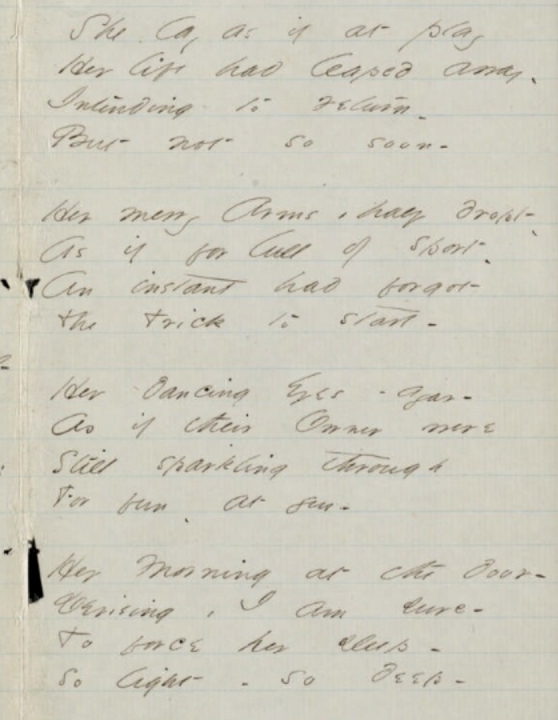 She lay as if at play
Her life had leaped away.
Intending to return.
But not so soon -

Her merry Arms, half dropt -
As if for lull of sport.
An instant had forgot -
the Trick to start -

Her dancing Eyes - ajar -
As if their Owner were
Still sparkling through
For fun at you -

Her Morning at the door -
Devising, I am sure -
To force her sleep -
So light - so deep -